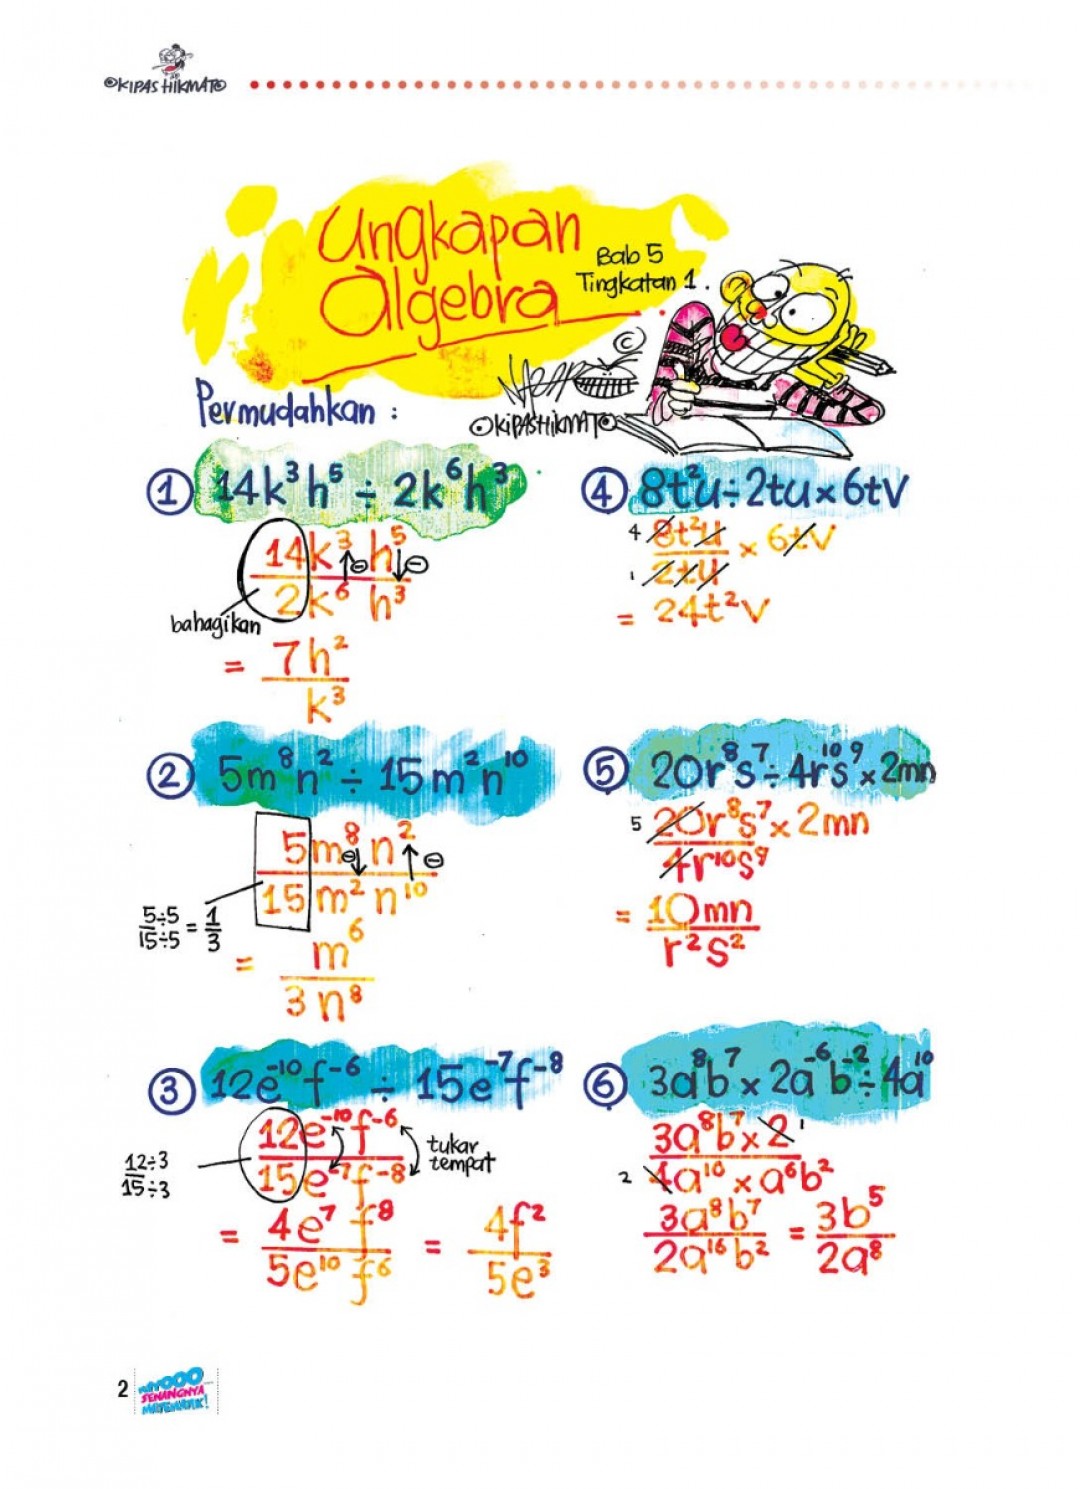 ©KIPAS HIKMAT©
Ungkapan
Algebra
Bab 5
Tingkatan 1.
©
©KIPASHIKMAT©
Permudahkan :
① 14k³h⁵ ÷ 2k⁶h³
14k³h⁵
2k⁶h³
bahagikan
= 7h²
k³
② 5m⁸n² ÷ 15m²n¹⁰
5m⁸n²
15m²n¹⁰
5÷5
15÷5
= 1
3
= m⁶
3n⁸
③ 12e⁻¹⁰f⁻⁶ ÷ 15e⁻⁷f⁻⁸
12e⁻¹⁰f⁻⁶
15e⁻⁷f⁻⁸
tukar
tempat
12÷3
15÷3
= 4e⁷f⁸ = 4f²
5e¹⁰f⁶ 5e³
④ 8t²u÷2tu×6tv
4 8t²u × 6tv
1 2tu
= 24t²v
⑤ 20r⁸s⁷÷4r¹⁰s⁹×2mn
5 20r⁸s⁷ × 2mn
4r¹⁰s⁹
= 10mn
r²s²
⑥ 3a⁸b⁷ × 2a⁻⁶b⁻² ÷ 4a¹⁰
3a⁸b⁷ × 2 1
2 4a¹⁰ × a⁶b²
3a⁸b⁷ = 3b⁵
2a¹⁶b² 2a⁸
2
SENANGNYA
MATEMATIK!